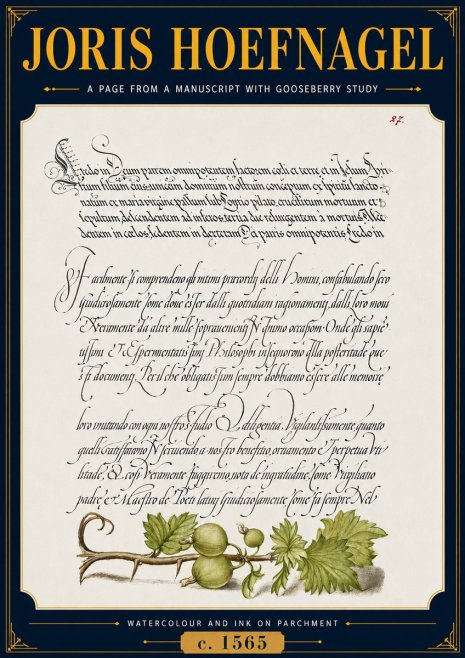 JORIS HOEFNAGEL
A PAGE FROM A MANUSCRIPT WITH GOOSEBERRY STUDY
27.
Credo in Deum patrem omnipotentem factorem coeli et terre et in Jesum Chri-
stum filium eius unicum dominum nostrum conceptum ex spiritu sancto
natum ex maria virgine passum sub Pontio pilato, crucifixum mortuum et
sepultum, descendentem ad inferos, tertia die resurgentem a mortuis, Ascen
dentem in coelos, sedentem in dexteram Dei patris omnipotentis Credo in
Facilmente si comprendeno gli intimi precordij delli Homini, confabulando seco
Giudicosamente Come done esser dalli quottidiani ragionamenti, dalli loro moui
O Veramente da altre mille sopravenienti N animo occasioni Onde gli sapie
tissimi Et Espermentatissimi Philosophi insegnorono alla posteritade que
sti documenti Per il che obligatissimi sempre dobbiamo essere alle memorie
loro imitando con ogni nostro studio Q diligentia. Vigilantissamente quanto
quelli Gratissanono N scruendo a nostro benefitio, ornamento Et perpetua Vti
litade, & cosi Veramente fuggiremo, nota di ingratitudine, Come Virgiliano
padre, et Maestro de Poeti latini Giudiciosamente Come fa sempre Nel
WATERCOLOUR AND INK ON PARCHMENT
c. 1565